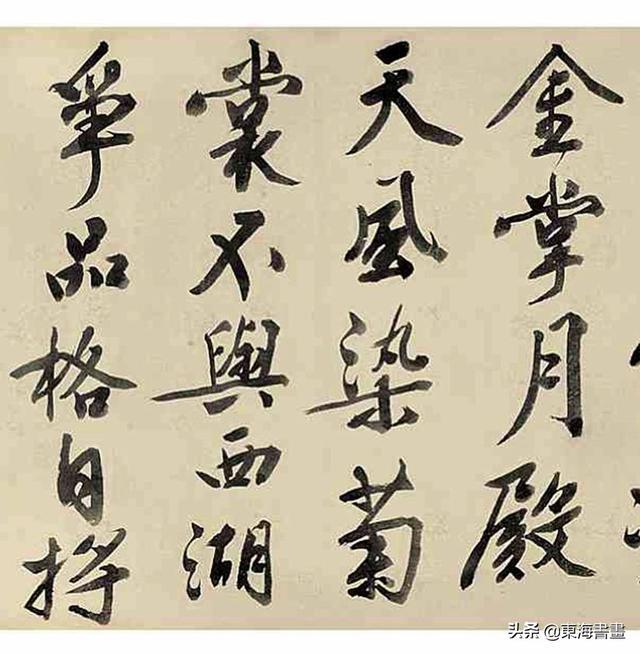 金掌月殿
天風染菊
裳不與西湖
爭品格自將
头条 @東海書畫